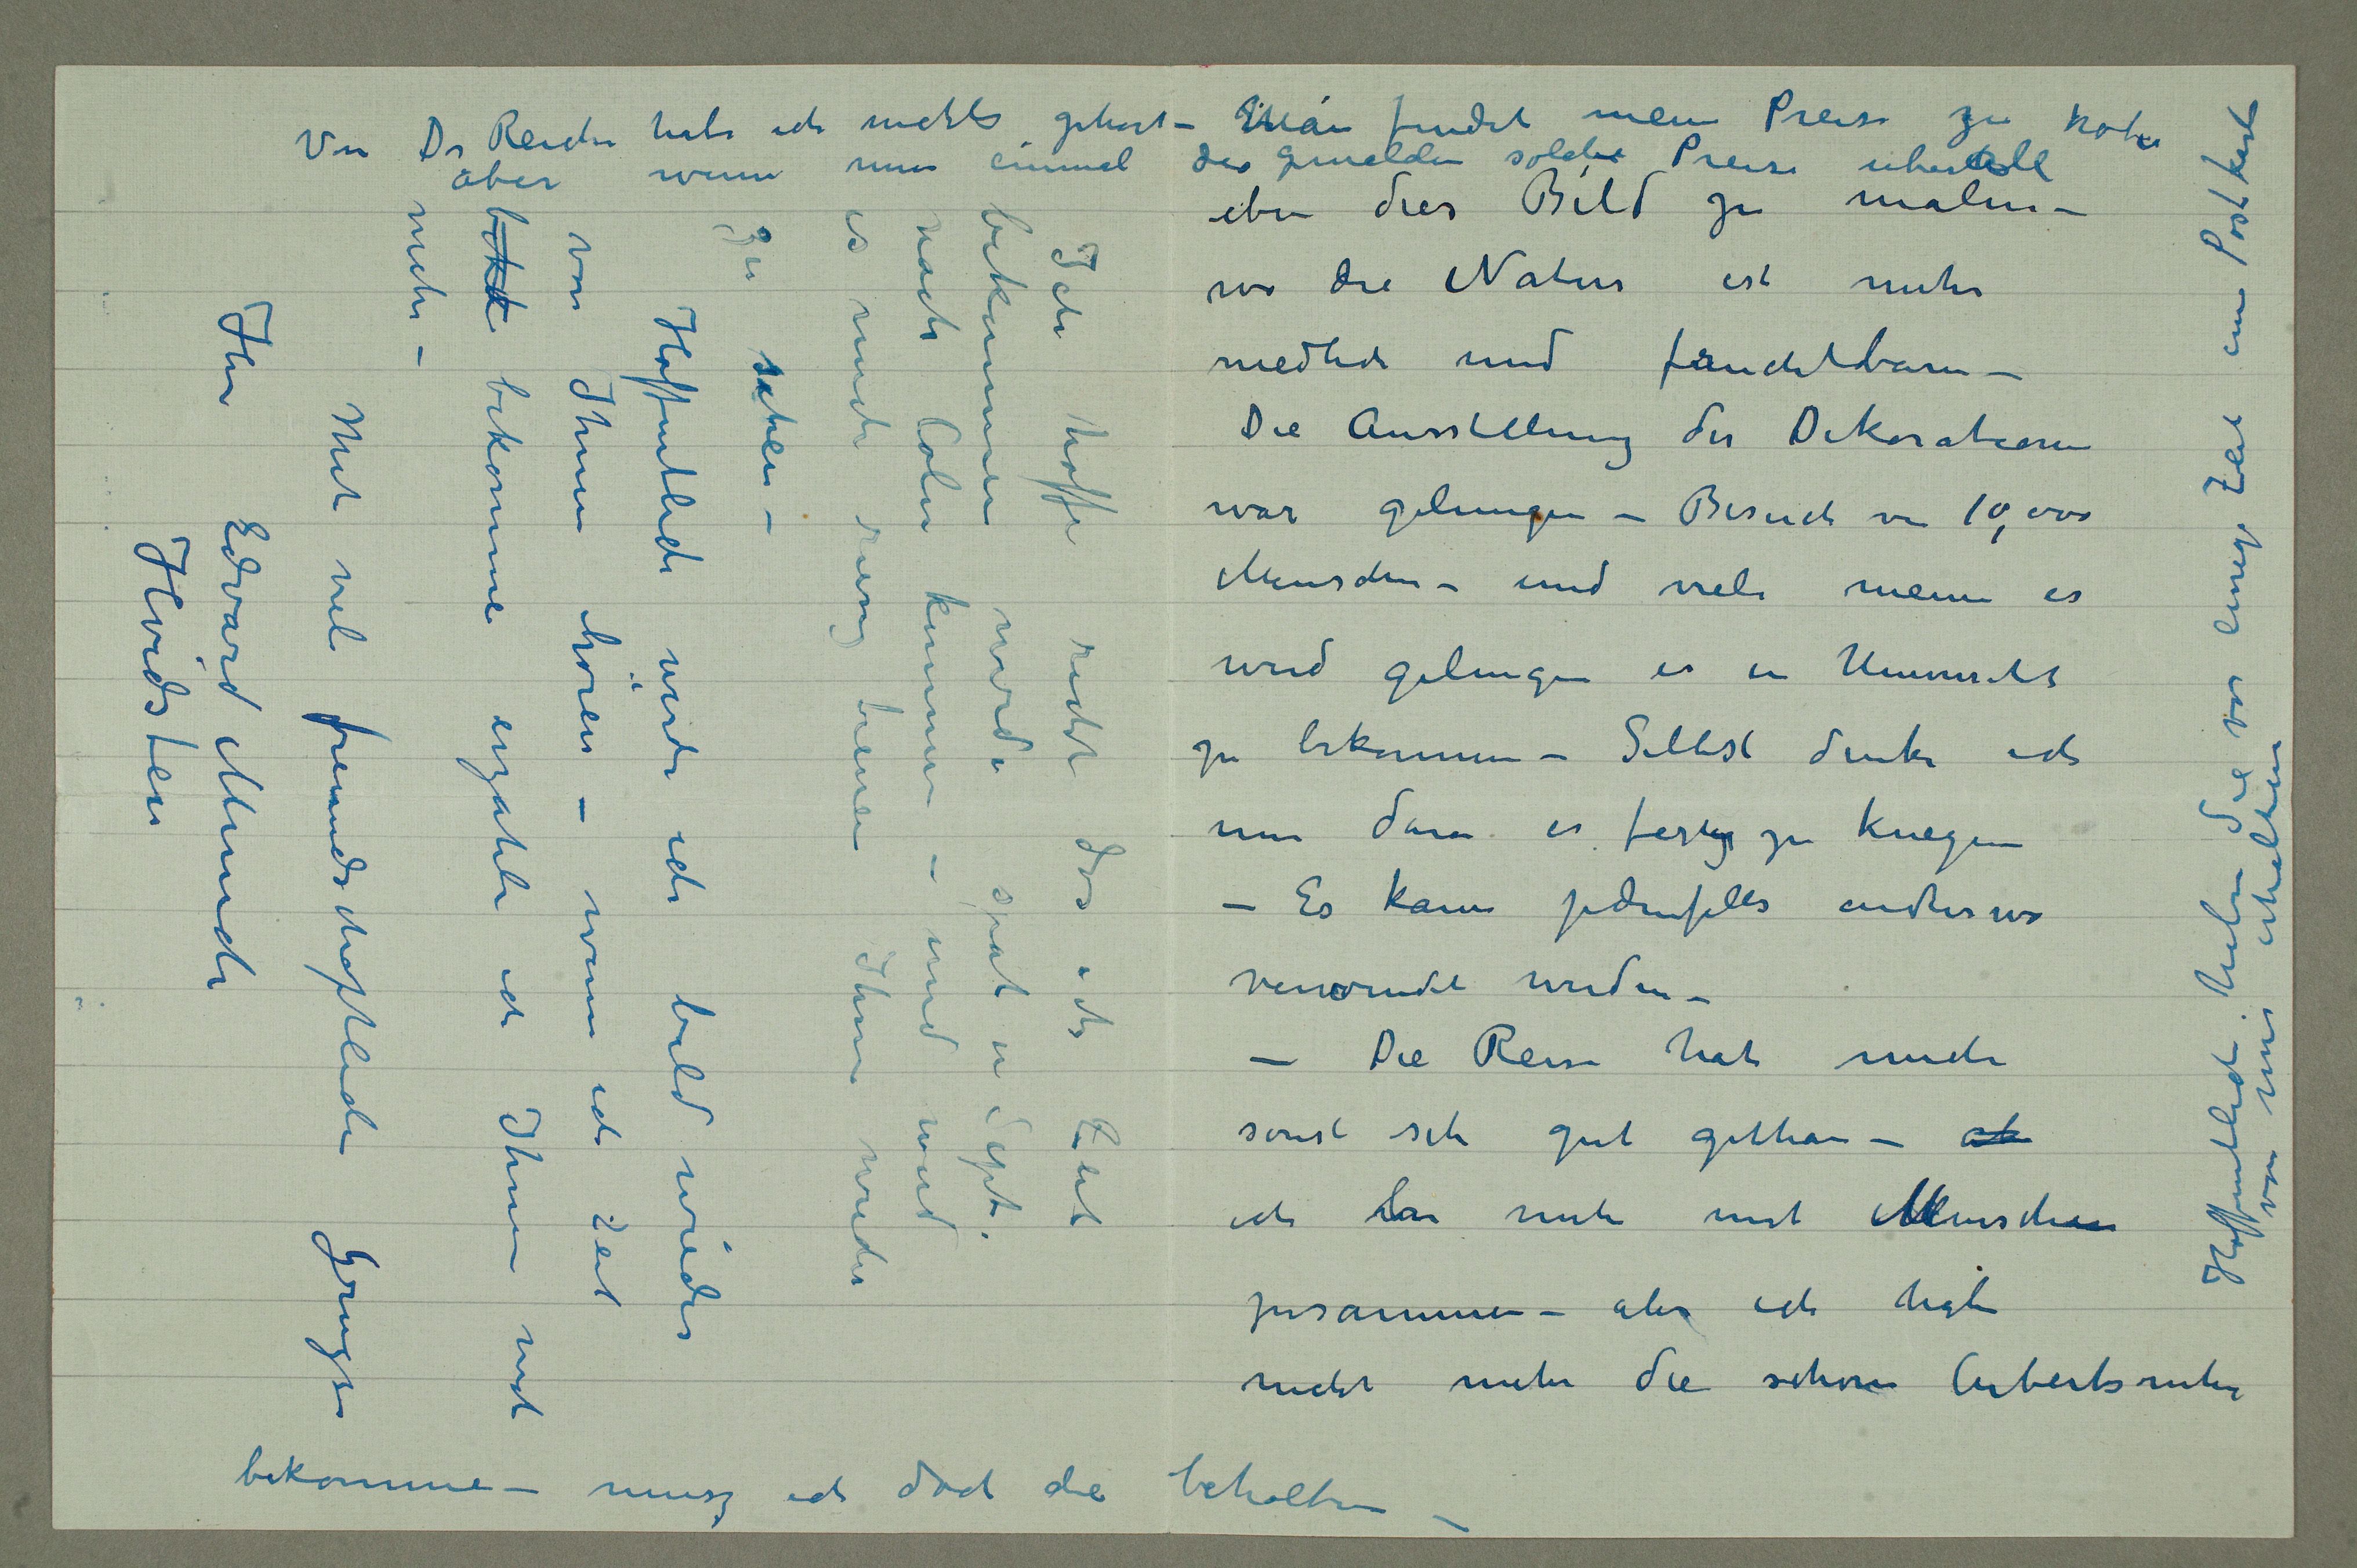 eben dies Bild zu malen –
wo die Natur ist mehr
niedlich und fruchtbarn –
Die Ausstellung der Dekorationen
war gelungen – Besuch von 10,000
Menschen – und viele meinen es
wird gelingen es in Universität
zu bekommen – Selbst denke ich
nur daran es fertig zu kriegen
– Es kann jedenfalls anderswo
verwendet werden –
– Die Reise hat mich
sonst sehr gut gethan –
ich bin mehr mit Menschen
zusammen – aber ich habe
nicht mehr die schöne Arbeitsruhe
Ich hoffe recht das ich Zeit
bekommen werde spät in Sept.
nach Cöln kommen – und wird
es mich freuen Ihnen wieder
zu sehen –
Hoffentlich werde ich bald wieder
von Ihnen hören – wenn ich Zeit
bekomme erzähle ich Ihnen noch
mehr –
Mit viel freundschaftliche Grüsze
Ihr Edvard Munch
Hvidsten
Von Dr Reiche habe ich nichts gehört – Man findet meine Preise zu hohe
aber wenn nun einmal die gemälden solche Preise überall
bekomme – musz ich doch die behalten –
Hoffentlich haben Sie vor einige Zeit eine Postkarte
von mir erhalten